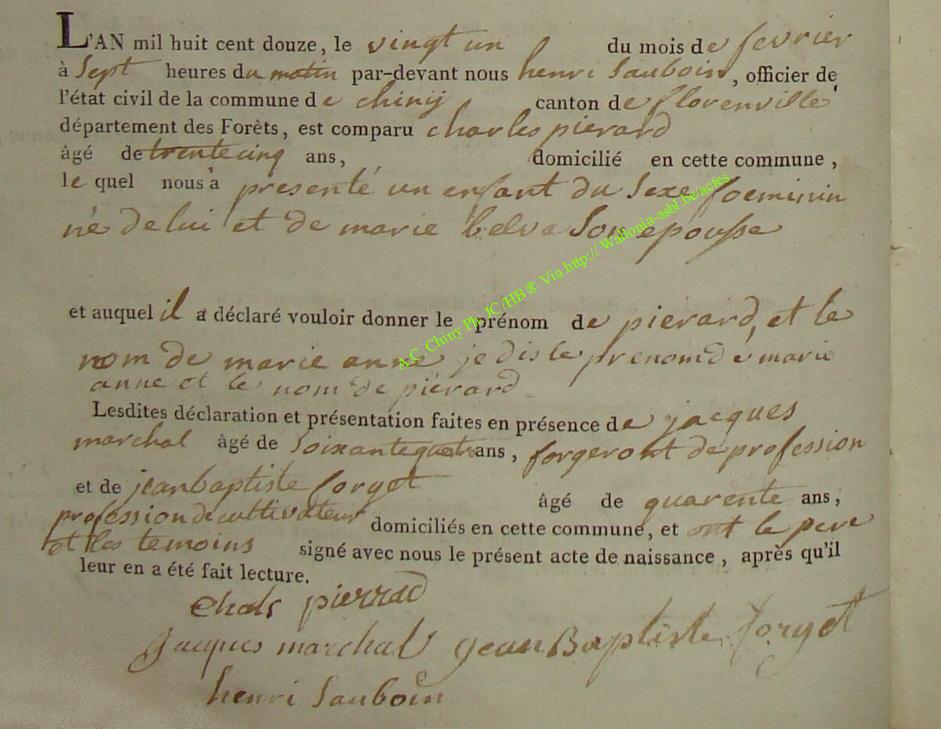 L'AN mil huit cent douze, le vingt un du mois de fevrier
à Sept heures du matin par-devant nous henri Sauboin, officier de
l'état civil de la commune de chinij canton de florenville
département des Forêts, est comparu charles pierard
âgé de trente cinq ans, domicilié en cette commune,
le quel nous a presenté un enfant du Sexe foeminin
né de lui et de marie belva Son epousse
et auquel il a déclaré vouloir donner le prénom de pierard, et le
nom de marie anne je dis le prenom de marie
anne et le nom de pierard
Lesdites déclaration et présentation faites en présence de jacques
marchal âgé de Soixante quatr ans, forgeront de profession
et de jean baptiste forget âgé de quarente ans,
profession de cultivateur domiciliés en cette commune, et ont le pere
et les temoins signé avec nous le présent acte de naissance, après qu'il
leur en a été fait lecture.
Chals pierrad
Jacques marchal jean Baptiste forget
henri Sauboin
A.C. Chiny Ph. JC/HB® Via http:// Wallonia-asbl.be/actes